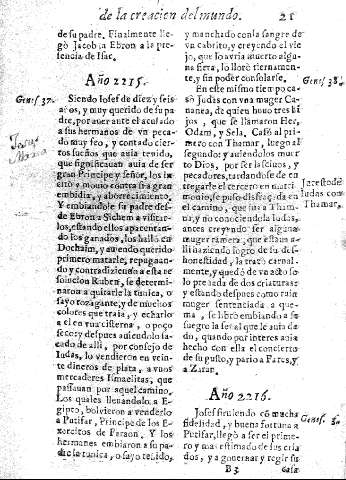 de la creacion del mundo. 21
de su padre. Finalmente lle-
gò Jacob a Ebron a la pre-
sencia de Isac.
Año 2215.
Genes. 37.
Siendo Iosef de diez y seis
años, y muy querido de su pa
dre, por auer ante el acusado
a sus hermanos de vn peca-
do muy feo, y contado cier-
tos sueños que auia tenido,
que significauan auia de ser
gran Principe y señor, los in
citò a mouio contra si a gran
embidia, y aborrecimiento.
Y embiandole su padre des-
de Ebron a Sichem a visitar-
los, estando ellos apacentan-
do los ganados, los hallò en
Dothaim, y auiendo querido
primero matarle, repugnan-
do y contradiziendo a esta re
solucion Ruben, se determi-
naron a quitarle la tunica, o
sayo rozagante, y de muchos
colores que traia, y echarlo
a el en vna cisterna, o poço
seco: y despues auiendolo sa-
cado de alli, por consejo de
Iudas, lo vendieron en vein-
te dineros de plata, a vnos
mercaderes Ismaelitas, que
passauan por aquel camino.
Los quales lleuandolo a E-
gipto, bolvieron a venderlo
a Putifar, Principe de los E-
xercitos de Faraon. Y los
hermanes embiaron a su pa-
dre la tunica, o sayo teñido,
y manchado con la sangre de
vn cabrito, y creyendo el vie
jo, que lo avria muerto algu
na fiera, lo llorò tiernamen-
te, y sin poder consolarse.
Genes. 38.
En este mismo tiempo ca-
sò Judas con vna muger Ca-
nanea, de quien huuo tres hi
jos, que se llamaron Her,
Odam, y Sela. Casò al pri-
mero con Thamar, luego al
segundo: y auiendolos muer
to Dios, por ser lasciuos, y
pecadores, tardandose de en
tregarle el tercero en matri-
monio, se puso disfraçada en
el camino, que iua a Tham-
nar, y no conociendola Iudas,
antes creyendo ser alguna
muger ramera, que estaua a-
lli haziendo logro de su des-
honestidad, la tratò carnal-
mente, y quedò de vn acto so
lo preñada de dos criaturas:
y estando despues como ruin
muger sentenciada a que-
ma, se librò embiando a su
suegro la señal que le auia da
do, quando por interes auia
hecho con ella el concierto
de su gusto, y pariò a Fares, y
a Zaran.
Iudas con
Thamar.
Año 2216.
Genes.
Josef siruiendo cō mucha
fidelidad, y buena fortuna a
Putifar, llegò a ser el prime-
ro y mas estimado de sus cria
dos, y a gouernar y regir su
B 3 casa